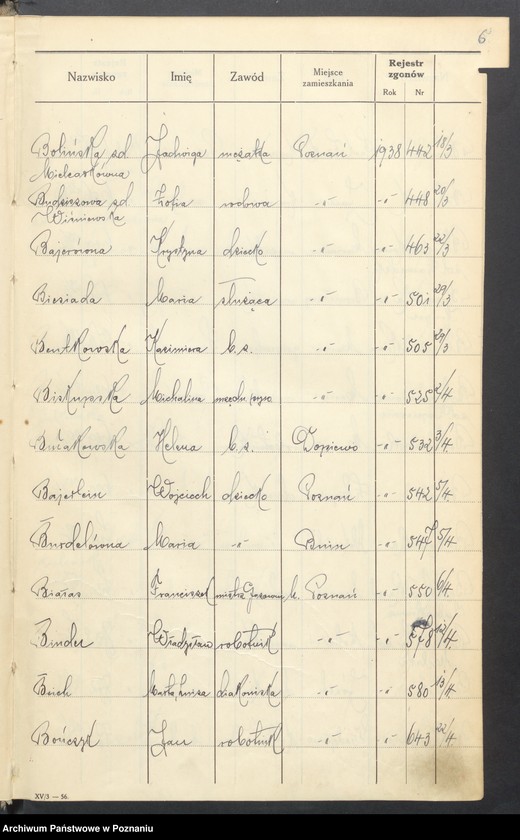 6
Nazwisko Imię Zawód Miejsce zamieszkania Rejestr zgonów Rok Nr
Bolińska zd. Jadwiga mężatka Poznań 1938 442 18/3
Mielcarkówna
Zofia wdowa -"- -"- 448 20/3
Wiśniewska
Bajerówna Krystyna dziecko -"- -"- 463 22/3
Biesiada Maria służąca -"- -"- 501 29/3
Bentkowska Kazimiera b.z. -"- -"- 505 29/3
Biskupska Michalina -"- -"- 525 2/4
Helena b.z. Dopiewo -"- 532 3/4.
Bajerlein Wojciech dziecko Poznań -"- 542 5/4.
Burdelówna Maria -"- Bnin -"- 547 5/4.
Białas Franciszek Poznań -"- 550 6/4.
Binder Władysław robotnik -"- -"- 578 12/4.
Beich Marta, Luiza diakoniska -"- -"- 580 13/4.
Bończyk Jan robotnik -"- -"- 643 22/4.
XV/3 — 56.
Archiwum Państwowe w Poznaniu